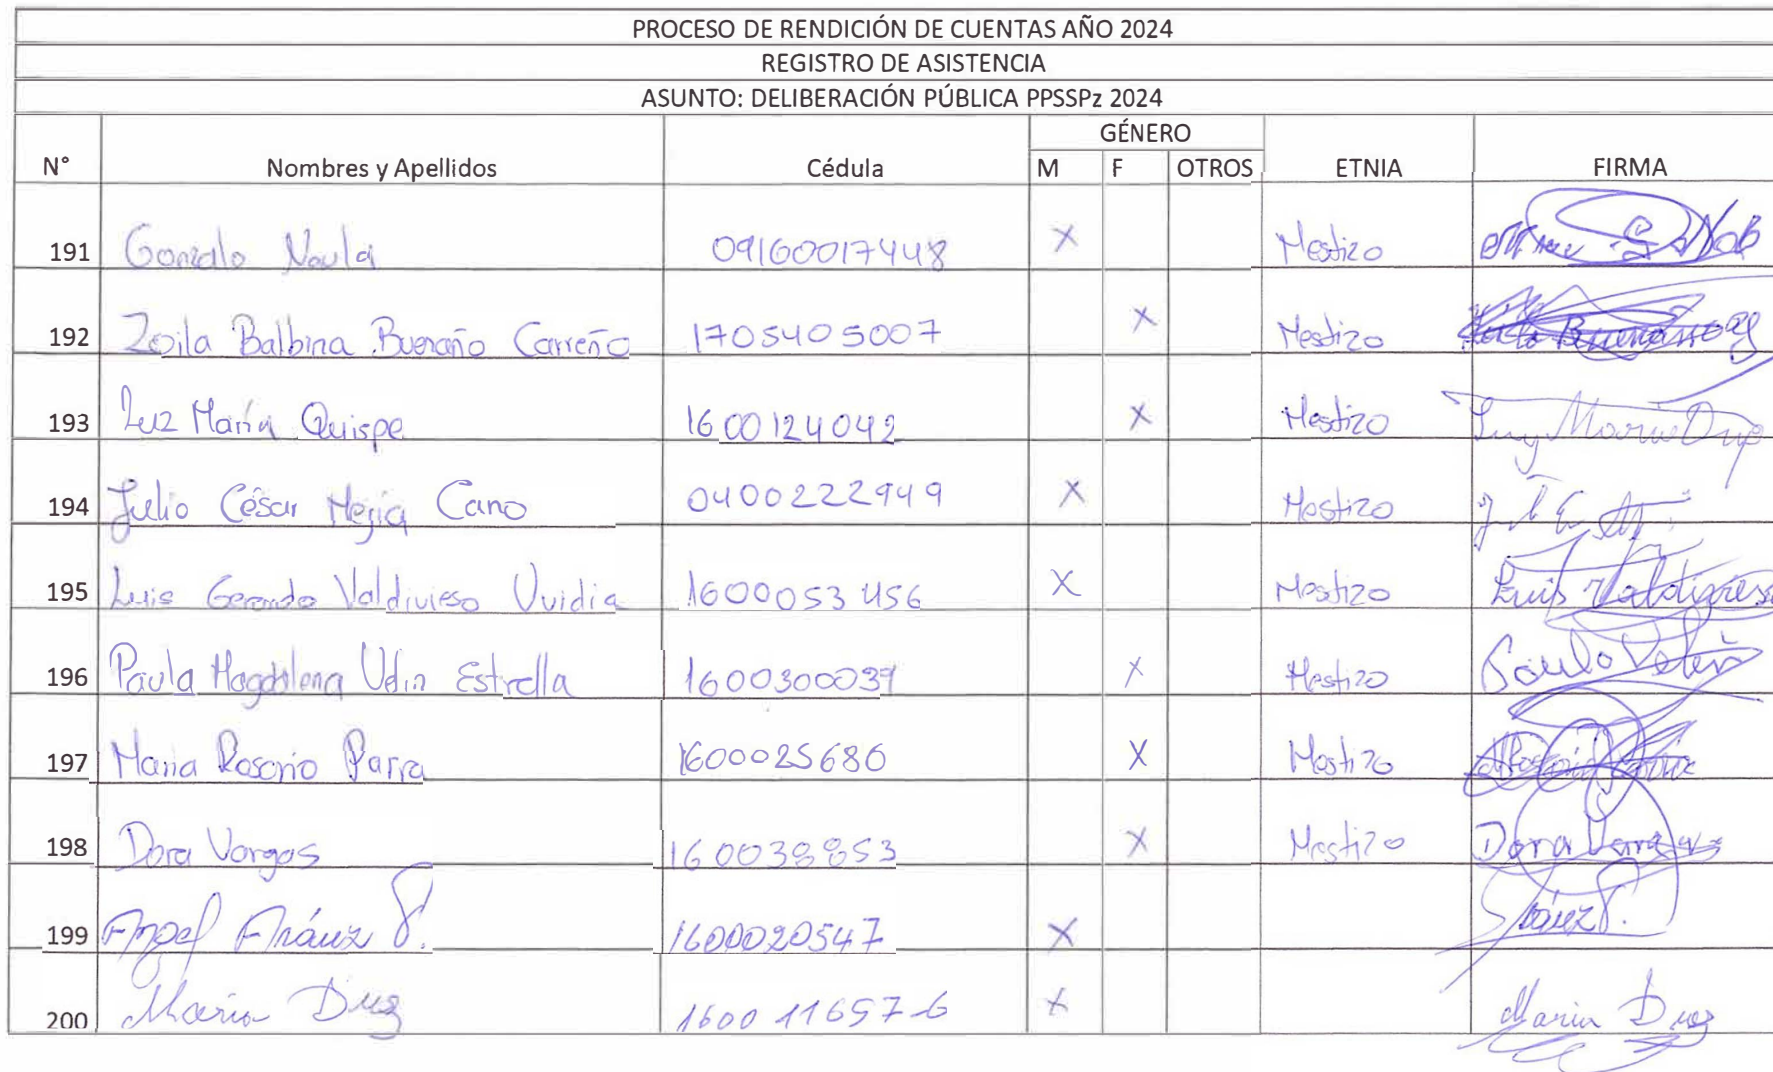 PROCESO DE RENDICIÓN DE CUENTAS AÑO 2024
REGISTRO DE ASISTENCIA
ASUNTO: DELIBERACIÓN PÚBLICA PPSSPz 2024
GÉNERO
N° Nombres y Apellidos Cédula M F OTROS ETNIA FIRMA
191 Gonzalo Naula 09160017448 X Mestizo
192 Zoila Balbina Buenaño Carreño 1705405007 X Mestizo
193 Luz María Quispe 1600124042 X Mestizo Luz María
194 Julio César Mejía Cano 0400222949 X Mestizo
195 Luis Gerardo Valdivieso Uvidia 1600053456 X Mestizo Luis
196 Paula Magdalena Estrella 1600300039 X Mestizo
197 Maria Rosario Parra 1600025686 X Mestizo
198 Dora Vargas 160038853 X Mestizo Dora Vargas
199 Angel Aráuz 1600020547 X
200 Maria 160011657-6 X Maria